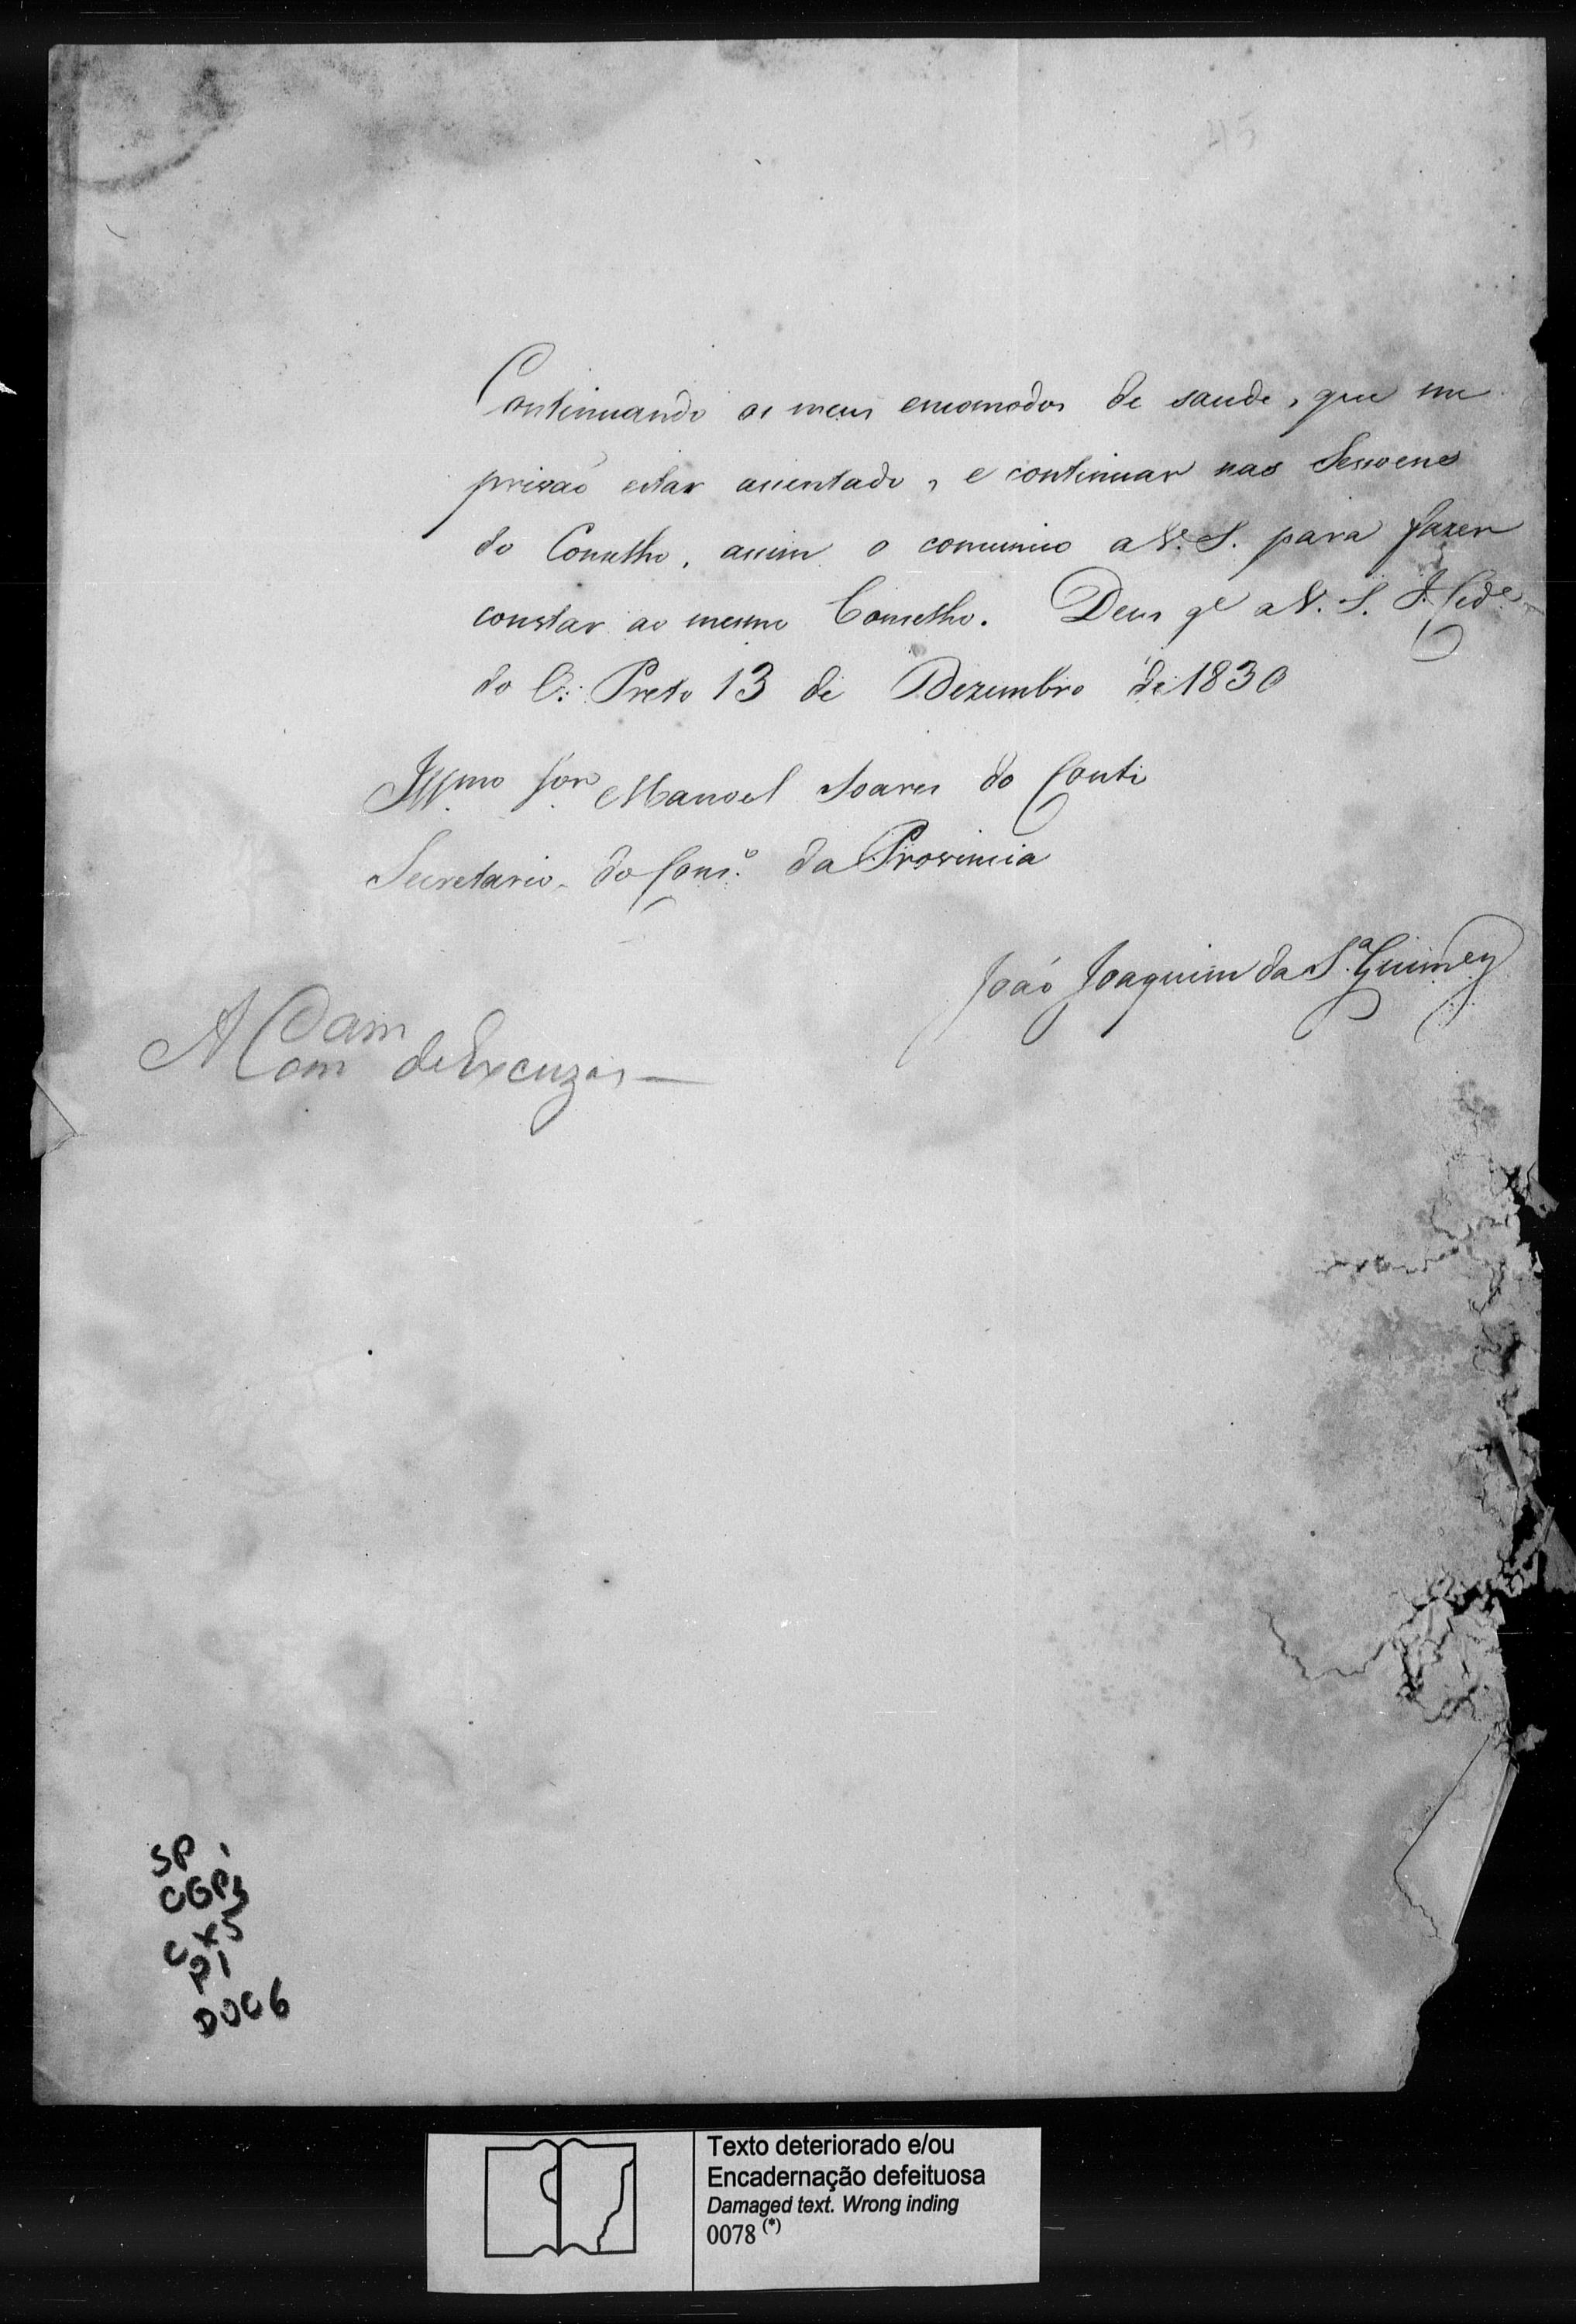 45
Continuando os meus encomodos de saude, que me
privaõ estar assentado, e continuar nas Sessoens
do Conselho, assim o comunico a V. S. para fazer
constar ao mesmo Conselho. Deus g.e a V. S. I. Cid.e
do O. Preto 13 de Dezembro de 1830
Ill.mo Sñr Manoel Soares do Couto
Secretario do Cons.o da Provincia
João Joaquim da S.a Guim.es
A Com
Com de Excuzas —
SP
CGP1
CX5
P1
DOC6
Texto deteriorado e/ou
Encadernação defeituosa
Damaged text. Wrong inding
0078 (*)